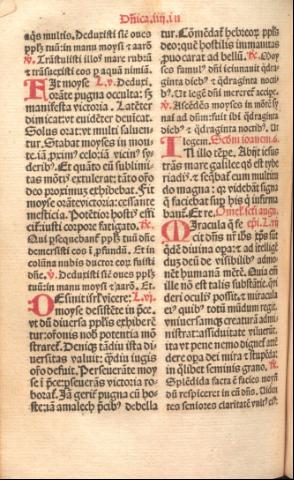 Dñica.iiij.in
aqs multis. Deduxisti sic oues
pplm tuũ in manu moysi ⁊ aarõ
℣. Trãstulisti illos mare rubrum
⁊ trãsuexisti eos p aquã nimiã.
Fit moyse L.v. Deduxi.
orãte pugna occulta: sȝ
manifesta victoria. Latẽter
dimicat: vt euidẽter deuincat.
Solus orat: vt multi saluen
tur. Stabat moyses in mon
te.iã. primꝰ celo: iã vicinꝰ sy
deribꝰ. Et quãto eũ sublimi
tas mõtis extulerat: tãto ofo
deo proximus exhibebat. Fit
moyse orãte victoria: cessante
mesticia. Potẽtior hostis effi
cit̃: iusti corpore fatigato. ℟.
Qui psequebant̃ pplm tuũ dñe
demersisti eos ĩ pfundũ. Et in
colũna nubis ductor eorũ fuisti
dñe. ℣. Deduxisti sic oues pplm
tuũ: in manu moysi ⁊ aarõ. Et.
Desinit isrl vicere: L.vj.
moyse desistẽte in p̃ce.
vt dũ diuersa pplis exhiberẽ
tur: ofonis nob potentia mõ
straret̃. Deniqȝ tãdiu ista di
uersitas valuit: qȝdiu iugis
ofo defuit. Perseuerãte moy
se ĩ p̃ce: pseuerãs victoria ro
borat̃. Iã gerit̃ pugna cũ ho
ste: iã amalech p̃cibꝰ debella
tur. Cõmẽdat̃ hebreorũ pplis
deo: que hostilis immanitas
puocarat ad bellũ. ℟. Moy
ses famulꝰ dñi ieiunauit qdra
ginta diebꝰ ⁊ qdraginta nocti
bꝰ. Ut legẽ dñi mereret̃ accipe.
℣. Ascẽdẽs moyses in mõtẽ sy
nai ad dñm: fuit ibi qdragita
diebꝰ ⁊ qdraginta noctibꝰ. Ut
legem. Scdm ioannem.
In illo tẽpe. Abijt iesus
trãs mare galilee qȝ est tybe
riadis. ⁊ seqbat̃ eum multitu
do magna: qꝛ videbãt signa
q̃ faciebat sup his q̃ infirma
bant̃. Et re. Omel. sci augu.
Miracula que fe epi. L.
cit dñs nr̃ ihs xp̃s sũt
qdẽ diuina opa: ⁊ ad itellige
dũȝ deũ de visibilibꝰ admo
nẽt humanã mẽtẽ. Quia em̃
ille nõ est talis substãtie: q̃ vi
deri oculis possit: ⁊ miracula
eiꝰ quibꝰ totũ mũdum regit
vniuersamqȝ creaturã admi
nistrat: assiduitate viluerũt:
ita vt pene nemo dignet̃ attẽ
dere opa dei mira ⁊ stupẽda:
in qlibet seminis grano. ℟.
Splẽdida facta ẽ facies moysi
dũ respiceret in eũ dñs. Uidẽ
tes seniores claritatẽ vultꝰ eiꝰ: